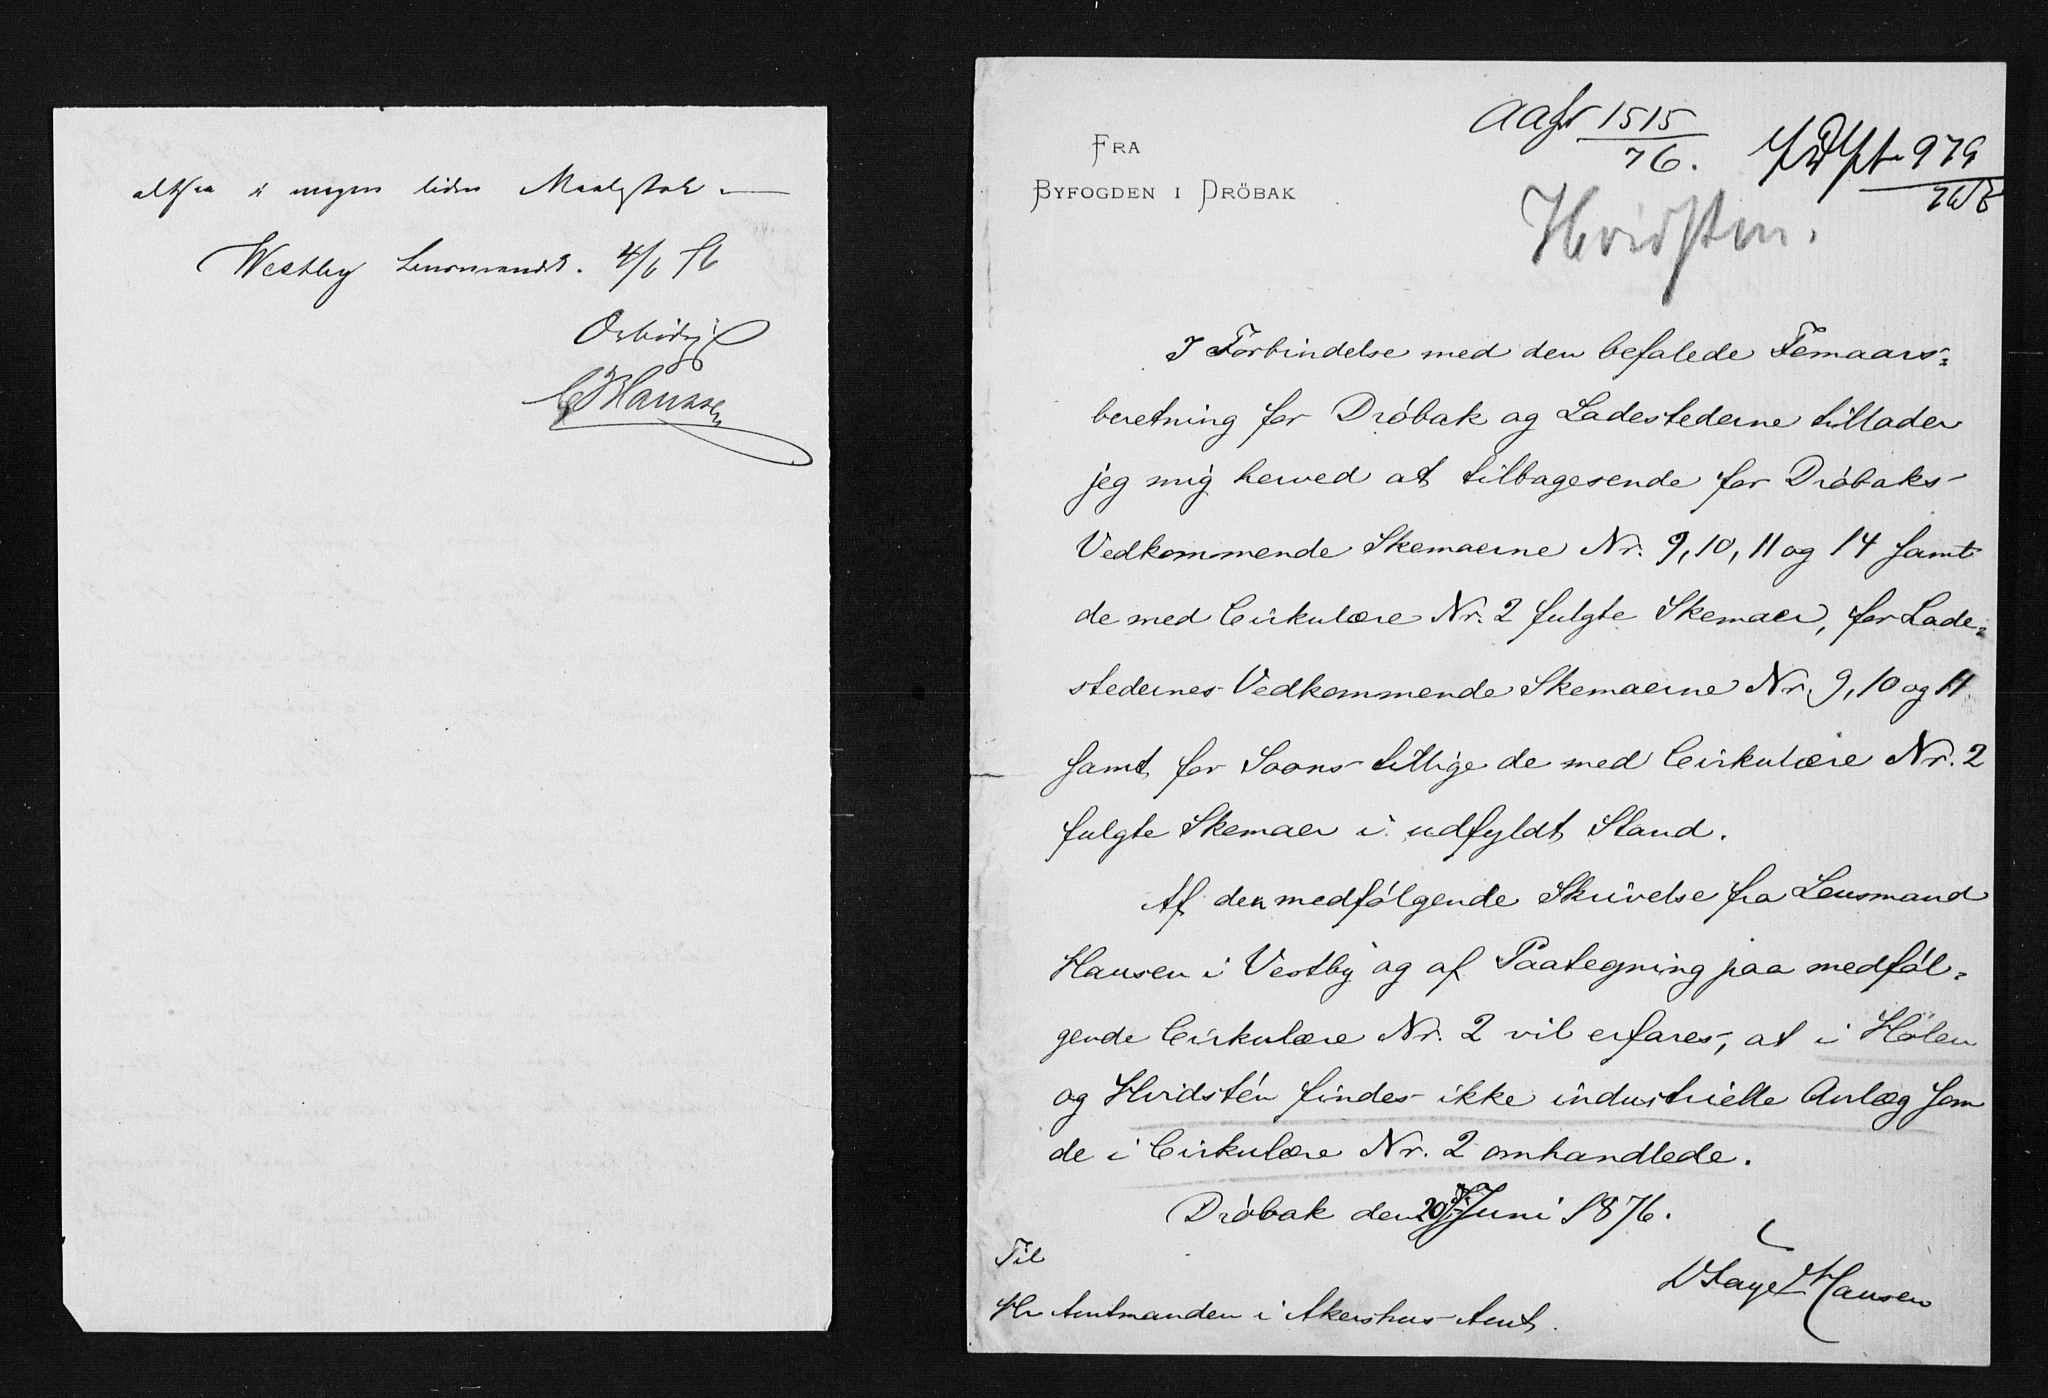 altsaa i megen liden Maalestok
Westby Lensmandsk. 4/6 76
Ærbødigst
Hansen
FRA
BYFOGDEN I DRÖBAK
1515
76.
979
Hvidsten.
I Forbindelse med den befalede Femaars-
beretning for Dröbak og Ladestederne tillader
jeg mig herved at tilbagesende for Dröbaks
Vedkommende Skemaerne Nr. 9, 10, 11 og 14 samt
de med Cirkulære Nr. 2 fulgte Skemaer, for Lade-
stedernes Vedkommende Skemaerne Nr. 9, 10 og 11
samt for Soons tillige de med Cirkulære Nr. 2
fulgte Skemaer i udfyldt Stand.
Af den medfölgende Skrivelse fra Lensmand
Hansen i Vestby og af Paategning paa medföl-
gende Cirkulære Nr. 2 vil erfares, at i Hölen
og Hvidsten findes ikke industrielle Anlæg som
de i Cirkulære Nr. 2 omhandlede.
Dröbak den 20 Juni 1876.
Hansen
Til
Hr Amtmanden i Akershus Amt.